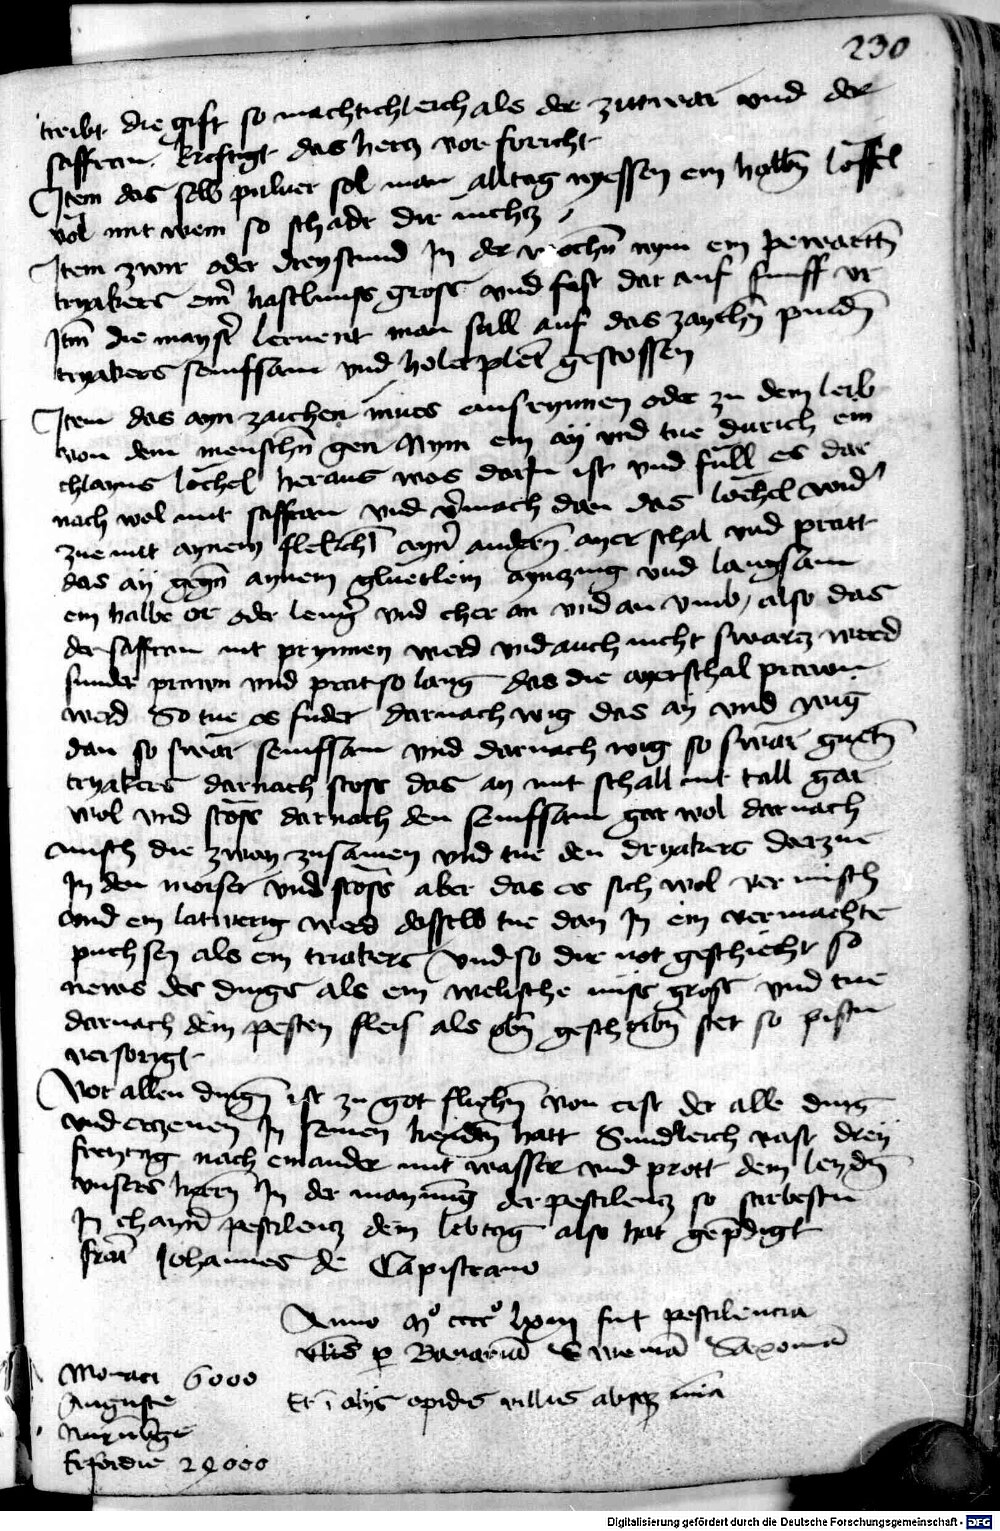 230
treibt die gift so machtichleich als der zitwar und der
saffran kreftigt das hercz vor foricht
Item das selb puluer sol man alltag nyessen ein holben löffel
vol mit wein so schadt dir nichcz
Item zwir oder dreystund In der wochn nym ein pewartten
tryakers einr haselnuss gross und fast dar auf funff ur
Itm die mayster lernent man sull auf das zaychn pindn
tryakers senifsam und holerpleter gestossen
Item das ayn zaichen mues ausrynnen oder zu dem leib
von dem menschn gen Nym ein ay und tue durich ein
chlayns lochel heraus was darIn ist und full es dar
nach wol mit saffran und vermach dan das lochel wider
zue mit aynem flekchl ayner andern ayerschal und pratt
das ay gegn aynem gluetlein aynczing und langsam
ein halbe or oder lenger und cher an und an umb, also das
der saffran nit prynnen werd und auch nicht swarcz werd
sunder prawn und prat so lang das die ayerschal prawn
werd So tue es suder darnach wig das ay und wig
dan so swär senifsam und darnach wig so swär guetn
tryakers darnach stoss das ay mit schall mit tall gar
wol und stoss darnach den senifsam gar wol darnach
misch die zway zusamen und tue den dryakers darzue
In den morser und stoss aber das es sich wol vermisch
und ein latwerig werd dasselb tue dan In ein vermachte
puchsen als ein triakers und so dir not geschiecht so
news des dings als ein welische nuss gross und tue
darnach dem pesten fleis als obn geschribn stet so pistu
versorigt
Vor allen dingn ist zu got fliehn von erst der alle ding
und erczeney In seinen henden hatt Sunderleich vast drey
freytag nach einander mit wasser und prott dem leydn
unsers herrn In der maynung der pestilencz so stirbestu
In chayner pestilencz dein lebtag also hat gepredigt
frater Johannes de Capistrano
Anno mº ccccº lxiii fuit pestilencia
ultis per Bavariam Sweviam Saxoniam
Monaci 6000
Auguste
Nurnberge
Erfordie 24000
Et in alijs opidis villis absque numero
Digitalisierung gefördert durch die Deutsche Forschungsgemeinschaft - DFG